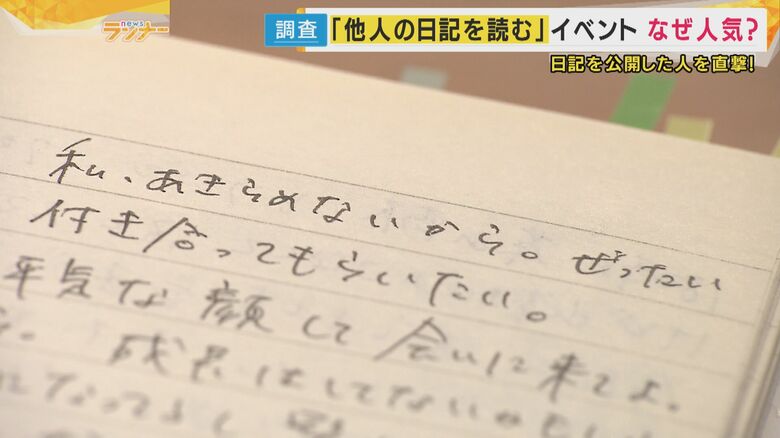 news
ランナー
調査
「他人の日記を読む」イベント なぜ人気?
日記を公開した人を直撃!
私、あきらめないから。ぜったい
付き合ってもらいたい。
平気な顔して会いに来てよ。
成長はしてないかもし